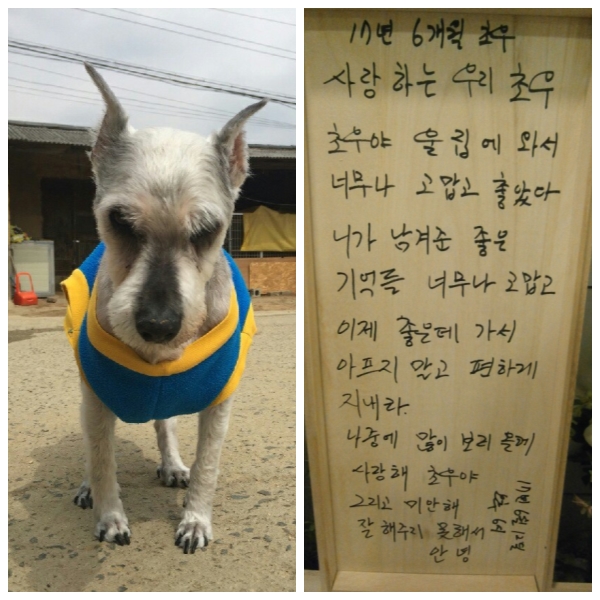 17년 6개월 초우
사랑하는 우리 초우
초우야 울집에 와서
너무나 고맙고 좋았다
니가 남겨준 좋은
기억들 너무나 고맙고
이제 좋은데 가서
아프지 말고 편하게
지내라.
나중에 많이
사랑해 초우야
그리고 미안해
잘 해주지 못해서
안녕